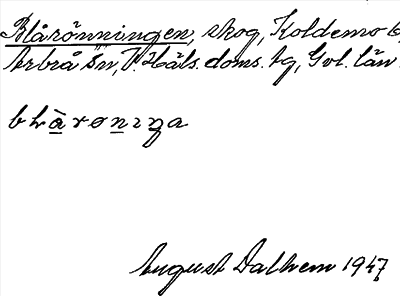 Blårönningen, skog, Koldemo by,
Arbrå sn, V. Häls. doms. tg, Gvl. län.
blàrønıŋa
August Dalhem 1947